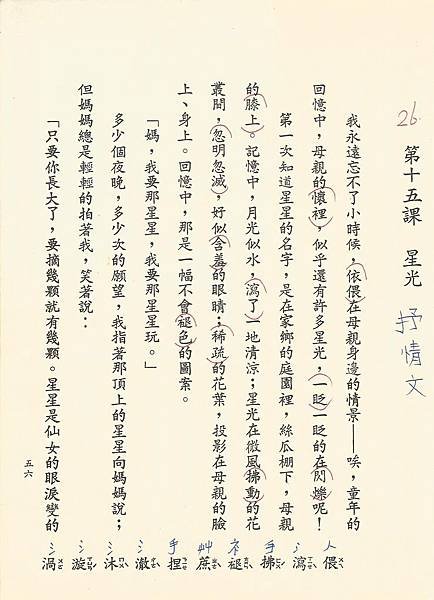 26.
第十五課　星光
抒情文
我永遠忘不了小時候，依偎在母親身邊的情景——唉，童年的
回憶中，母親的懷裡，似乎還有許多星光，一眨一眨的在閃爍呢！
第一次知道星星的名字，是在家鄉的庭園裡，絲瓜棚下，母親
的膝上。記憶中，月光似水，瀉了一地清涼；星光在微風拂動的花
叢間，忽明忽滅，好似含羞的眼睛；稀疏的花葉，投影在母親的臉
上、身上。回憶中，那是一幅不會褪色的圖案。
「媽，我要那星星，我要那星星玩。」
多少個夜晚，多少次的願望，我指著那頂上的星星向媽媽說；
但媽媽總是輕輕的拍著我，笑著說：
「只要你長大了，要摘幾顆就有幾顆。星星是仙女的眼淚變的
五六
人 偎
氵 瀉
手 拂
衤 褪
艸 蔗
手 捏
氵 澈
氵 沐
氵 漩
氵 渦